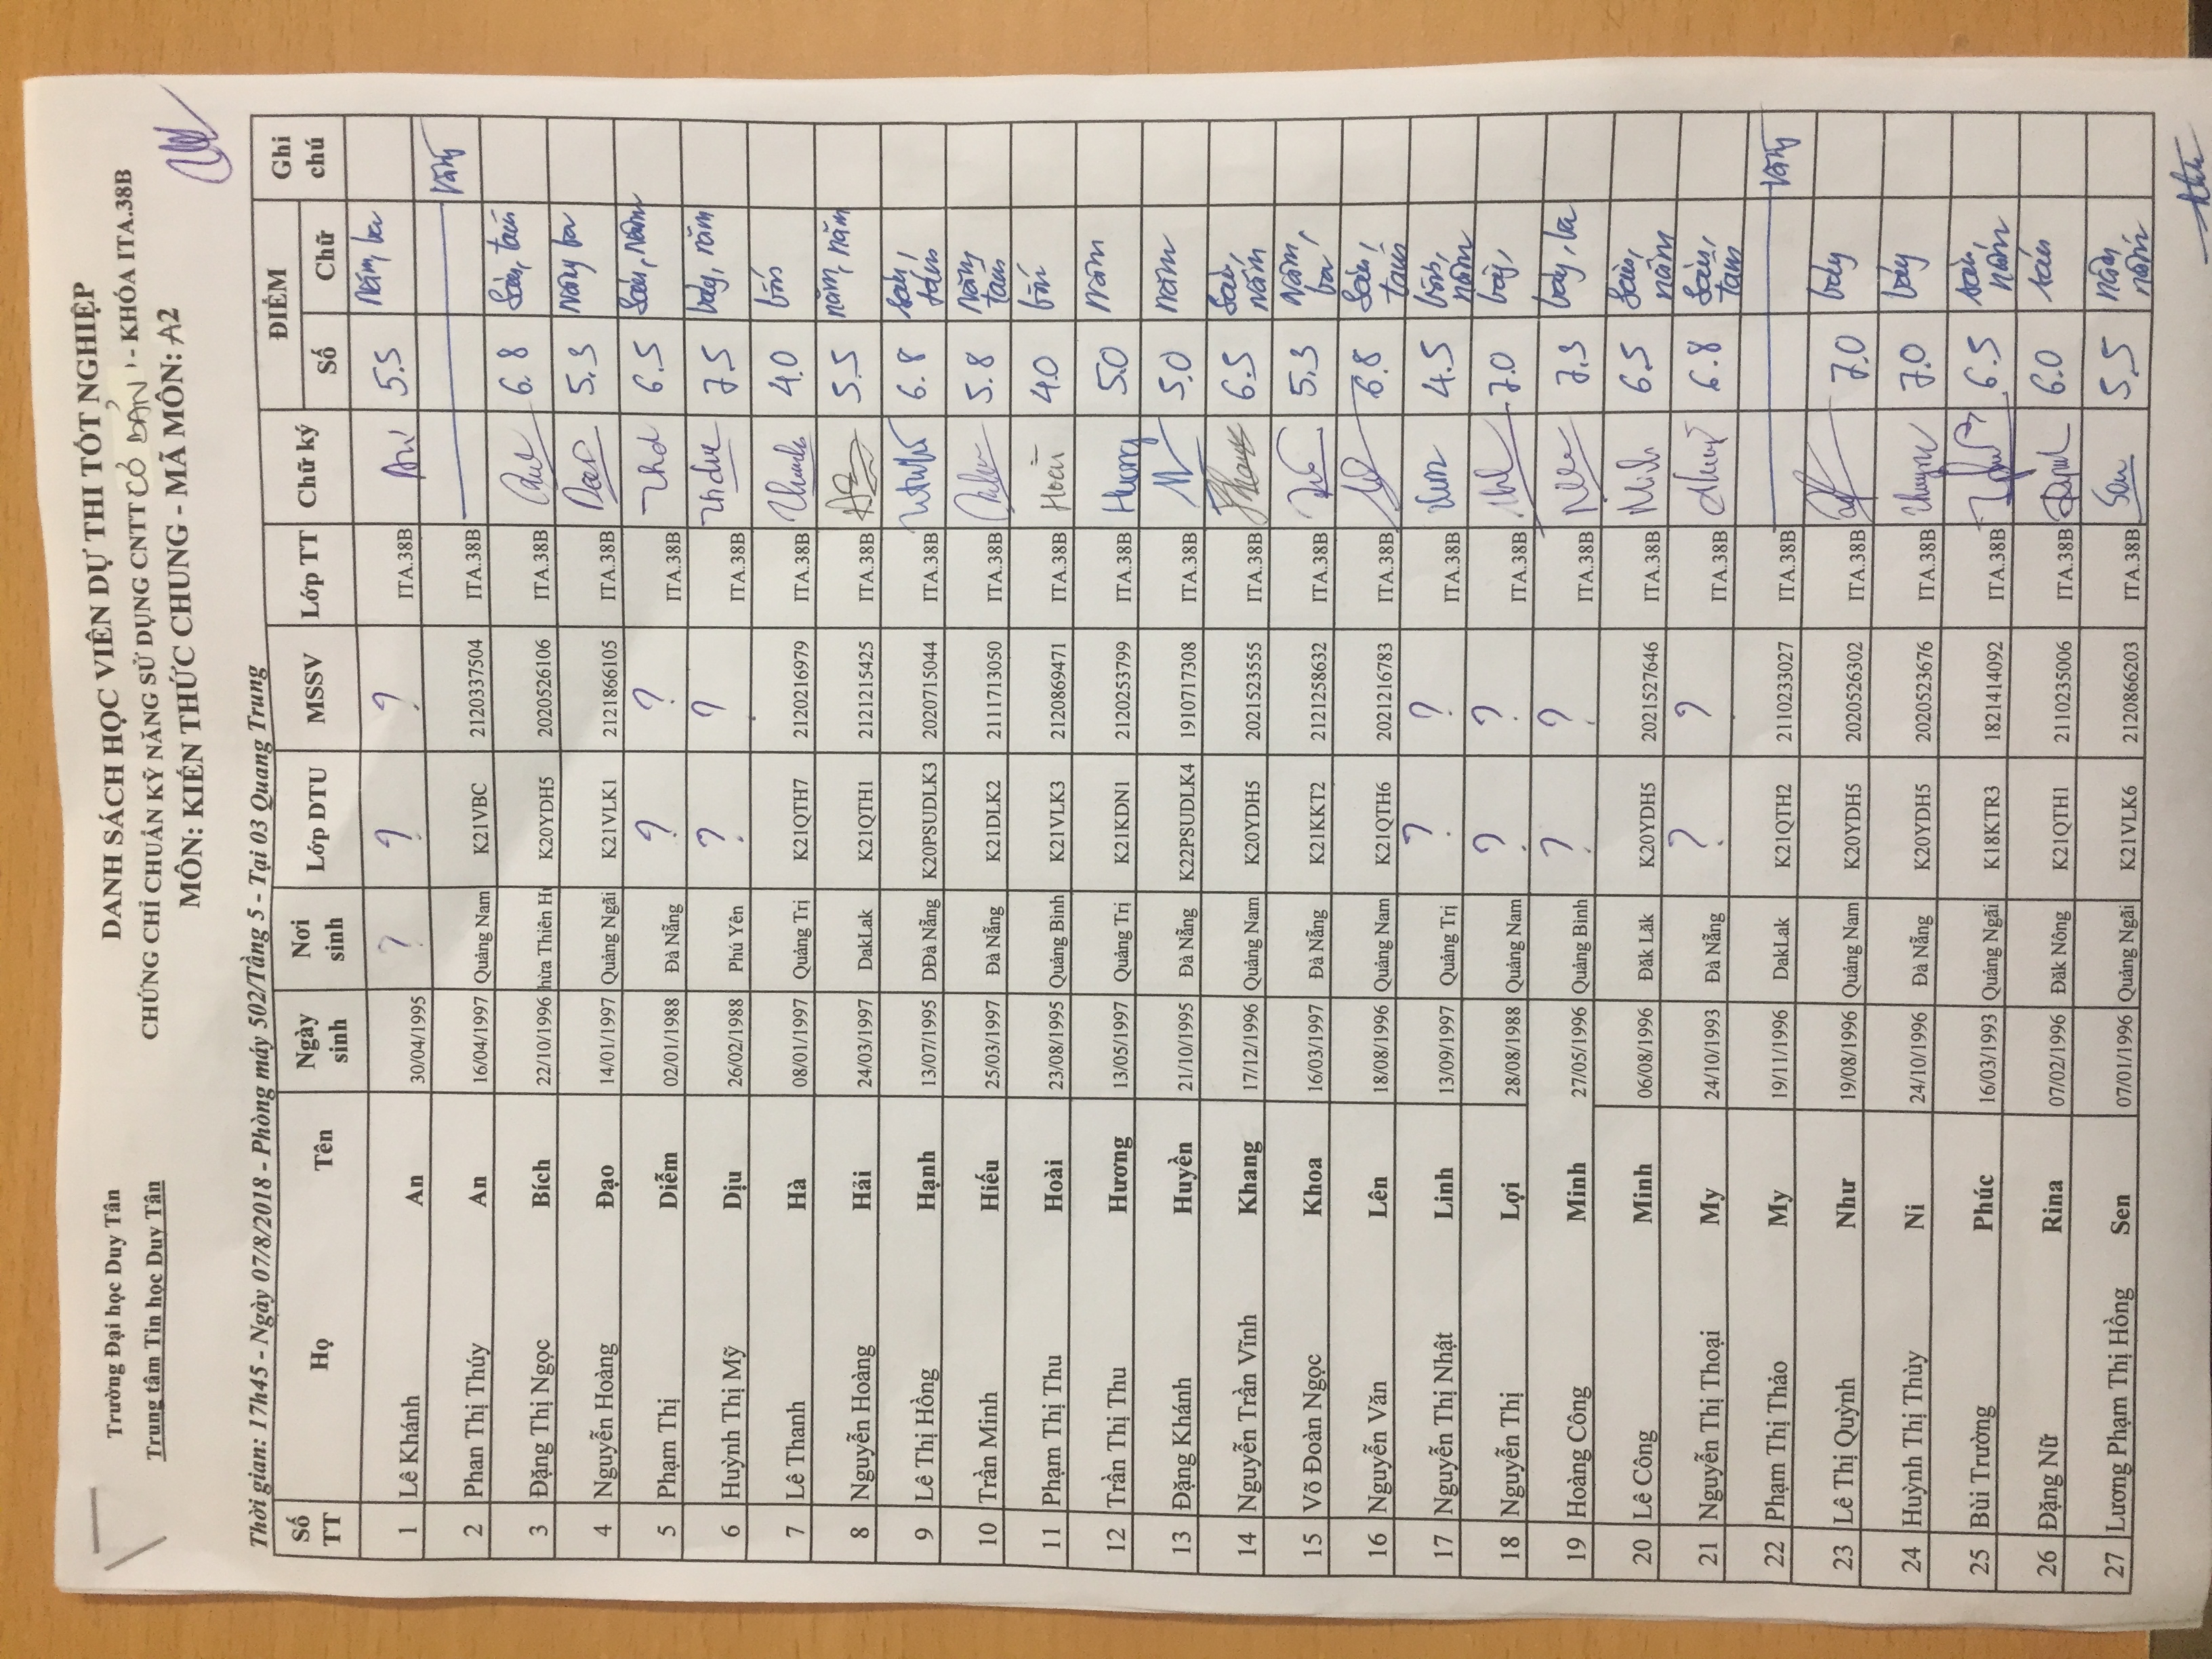 Trường Đại học Duy Tân
Trung tâm Tin học Duy Tân
DANH SÁCH HỌC VIÊN DỰ THI TỐT NGHIỆP
CHỨNG CHỈ CHUẨN KỸ NĂNG SỬ DỤNG CNTT CƠ BẢN - KHÓA ITA.38B
MÔN: KIẾN THỨC CHUNG - MÃ MÔN: A2
Thời gian: 17h45 - Ngày 07/8/2018 - Phòng máy 502/Tầng 5 - Tại 03 Quang Trung
Số TT Họ Tên Ngày sinh Nơi sinh Lớp DTU MSSV Lớp TT Chữ ký ĐIỂM Số Chữ Ghi chú
1 Lê Khánh An 30/04/1995 ? ? ? ITA.38B An 5.5 Năm, ba
2 Phan Thị Thúy An 16/04/1997 Quảng Nam K21VBC 2120337504 ITA.38B Vắng
3 Đặng Thị Ngọc Bích 22/10/1996 hừa Thiên H K20YDH5 2020526106 ITA.38B 6.8 Sáu, tám
4 Nguyễn Hoàng Đạo 14/01/1997 Quảng Ngãi K21VLK1 2121866105 ITA.38B Đạo 5.3 Năm, ba
5 Phạm Thị Diễm 02/01/1988 Đà Nẵng ? ? ITA.38B 6.5 Sáu, năm
6 Huỳnh Thị Mỹ Dịu 26/02/1988 Phú Yên ? ? ITA.38B 7.5 bảy, năm
7 Lê Thanh Hà 08/01/1997 Quảng Trị K21QTH7 2120216979 ITA.38B 4.0 bốn
8 Nguyễn Hoàng Hải 24/03/1997 DakLak K21QTH1 2121215425 ITA.38B 5.5 năm, năm
9 Lê Thị Hồng Hạnh 13/07/1995 DĐà Nẵng K20PSUDLK3 2020715044 ITA.38B 6.8 sáu, tám
10 Trần Minh Hiếu 25/03/1997 Đà Nẵng K21DLK2 2111713050 ITA.38B 5.8 Năm, tám
11 Phạm Thị Thu Hoài 23/08/1995 Quảng Bình K21VLK3 2120869471 ITA.38B Hoài 4.0 bốn
12 Trần Thị Thu Hương 13/05/1997 Quảng Trị K21KDN1 2120253799 ITA.38B Hương 5.0 năm
13 Đặng Khánh Huyền 21/10/1995 Đà Nẵng K22PSUDLK4 1910717308 ITA.38B 5.0 năm
14 Nguyễn Trần Vĩnh Khang 17/12/1996 Quảng Nam K20YDH5 2021523555 ITA.38B Khang 6.5 Sáu, năm
15 Võ Đoàn Ngọc Khoa 16/03/1997 Đà Nẵng K21KKT2 2121258632 ITA.38B 5.3 Năm, ba,
16 Nguyễn Văn Lên 18/08/1996 Quảng Nam K21QTH6 2021216783 ITA.38B 6.8 Sáu, tám
17 Nguyễn Thị Nhật Linh 13/09/1997 Quảng Trị ? ? ITA.38B 4.5 bốn, năm
18 Nguyễn Thị Lợi 28/08/1988 Quảng Nam ? ? ITA.38B 7.0 bảy,
19 Hoàng Công Minh 27/05/1996 Quảng Bình ? ? ITA.38B 7.3 bảy, ba
20 Lê Công Minh 06/08/1996 Đăk Lăk K20YDH5 2021527646 ITA.38B Minh 6.5 Sáu, năm
21 Nguyễn Thị Thoại My 24/10/1993 Đà Nẵng ? ? ITA.38B 6.8 Sáu, tám
22 Phạm Thị Thảo My 19/11/1996 DakLak K21QTH2 2110233027 ITA.38B Vắng
23 Lê Thị Quỳnh Như 19/08/1996 Quảng Nam K20YDH5 2020526302 ITA.38B 7.0 bảy
24 Huỳnh Thị Thùy Ni 24/10/1996 Đà Nẵng K20YDH5 2020523676 ITA.38B 7.0 bảy
25 Bùi Trường Phúc 16/03/1993 Quảng Ngãi K18KTR3 1821414092 ITA.38B 6.5 sáu, năm
26 Đặng Nữ Rina 07/02/1996 Đăk Nông K21QTH1 2110235006 ITA.38B 6.0 sáu
27 Lương Phạm Thị Hồng Sen 07/01/1996 Quảng Ngãi K21VLK6 2120866203 ITA.38B Sen 5.5 năm, năm